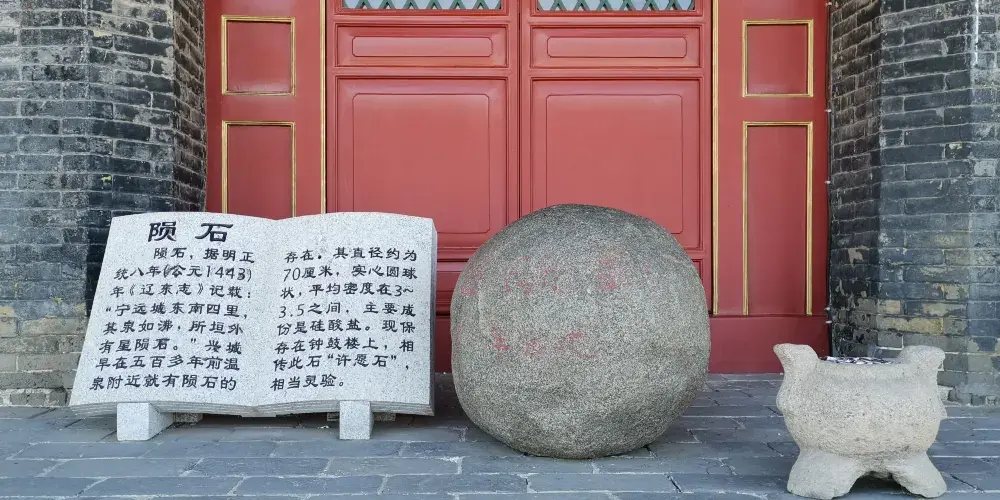 陨石
陨石，据明正
统八年(公元1443)
年《辽东志》记载：
“宁远城东南四里，
其泉如沸，所垣外
有星陨石。”兴城
早在五百多年前温
泉附近就有陨石的
存在。其直径约为
70厘米，实心圆球
状，平均密度在3~
3.5之间，主要成
份是硅酸盐。现保
存在钟鼓楼上，相
传此石“许愿石”，
相当灵验。